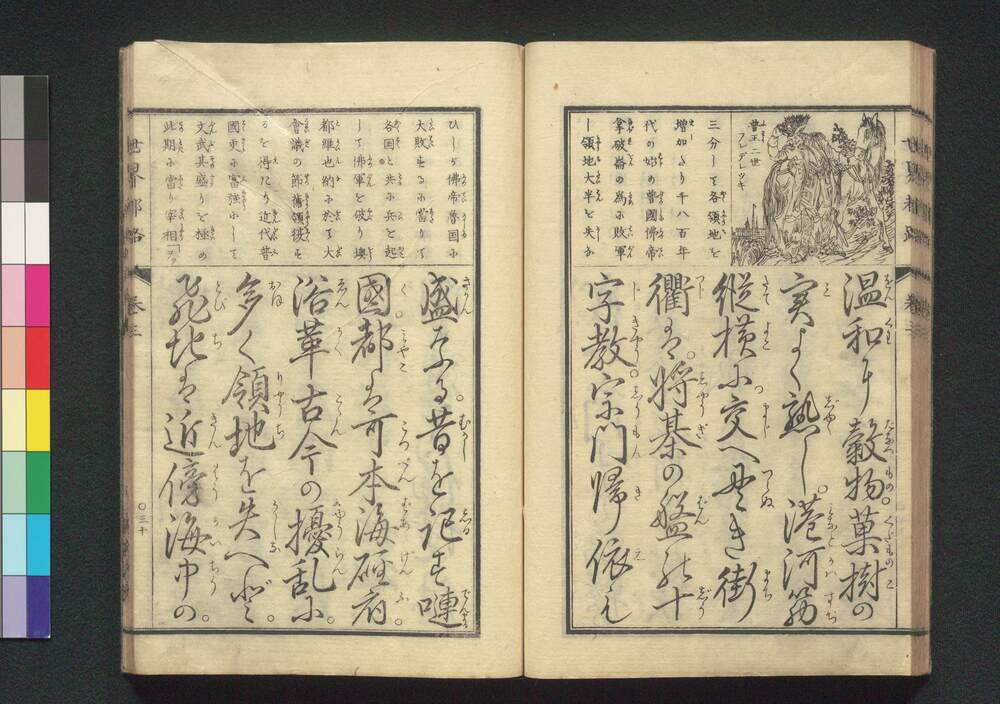 普王二世
フレデレッキ
三分して各領地を
増加たり千八百年
代の始め普國佛帝
拿破崙の為に敗軍
し領地大半を失ふ
温和に穀物菓樹の
実よく熟し。港河筋
縦横に交へ
街
衢は。将棊の盤の十
字教宗門帰依も
世界都路
巻三
ひしが佛帝魯国に
大敗するに當りて
各国と共に兵を起
して佛軍を破り墺
都維也納に於る大
會議の節舊領後も
るを得たり近代普
國更に富強にして
文武其盛りを極め
此期に當り宰相
盛なる。昔を記す嗹
國都は可本海硜府。
沿革古今の擾乱に。
多く領地を失へど。
飛地は近傍海中の。
世界都路
巻三
〇三十